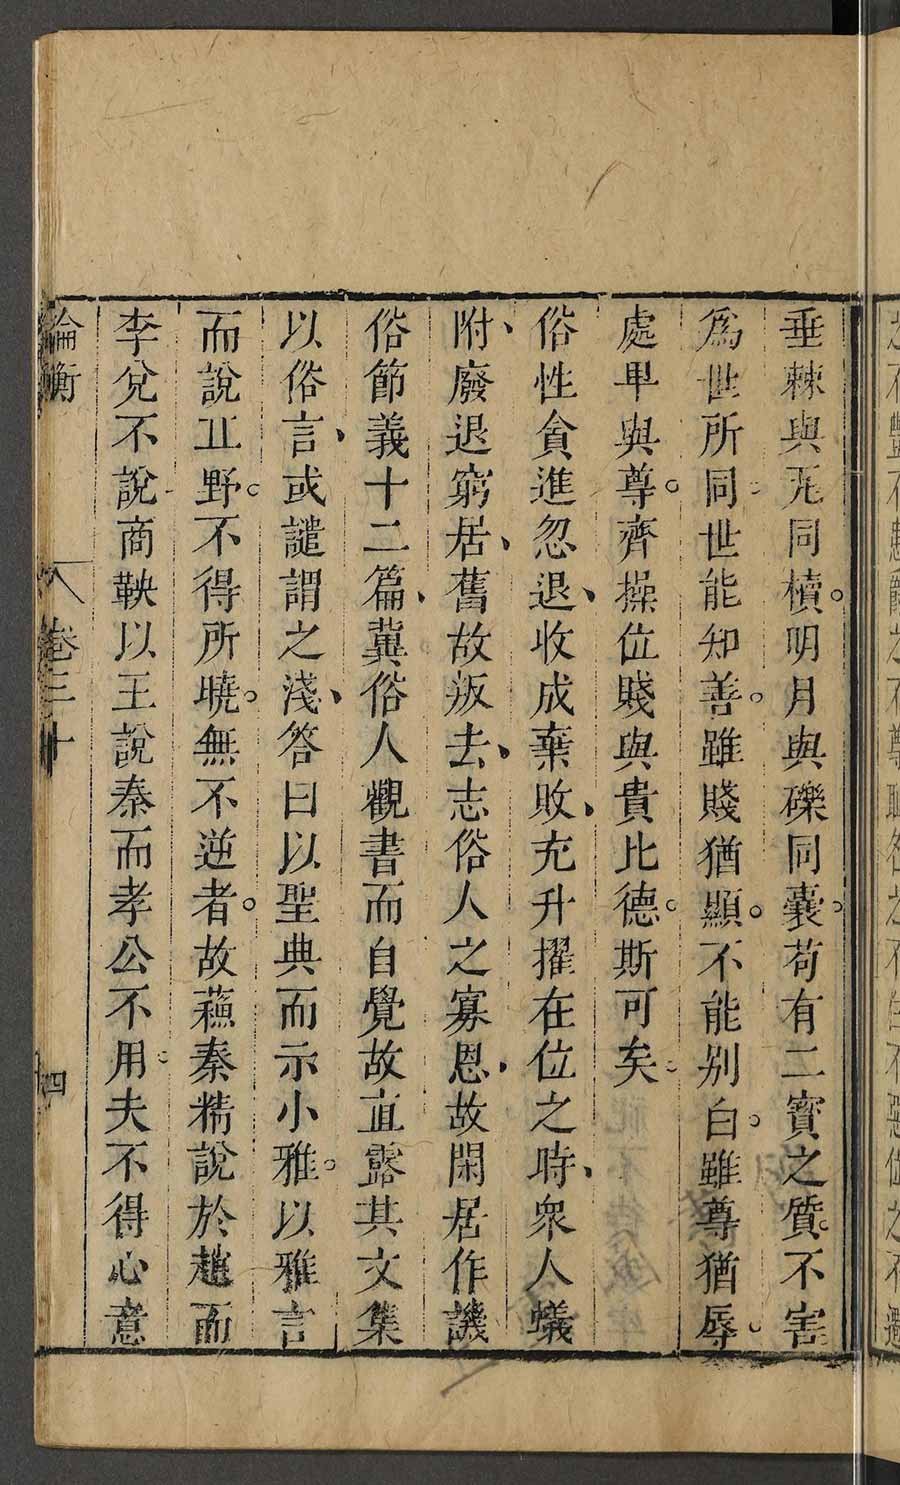 垂棘與瓦同櫝。明月與礫同囊。苟有二寶之質。不害
爲世所同。世能知善。雖賤猶顯。不能别白。雖尊猶辱。
處卑與尊。齊操位賤與貴比德。斯可矣。
俗性貪進忽退、收成棄敗、充升擢在位之時、衆人蟻
附、廢退窮居、舊故叛去、志俗人之寡恩、故閑居作譏
俗節義十二篇、冀俗人觀書而自覺故直露其文集
以俗言、或譴謂之淺、答曰以聖典而示小雅。以雅言
而說丘野。不得所曉。無不逆者。故蘓秦精說於趙而
李兌不說商鞅以王說秦而孝公不用。夫不得心意
論衡
卷三十
四